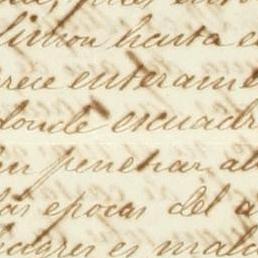 Limon hasta e
rece enterame
donde escuadr
penetrar al
las epocas del a
lugares es mala